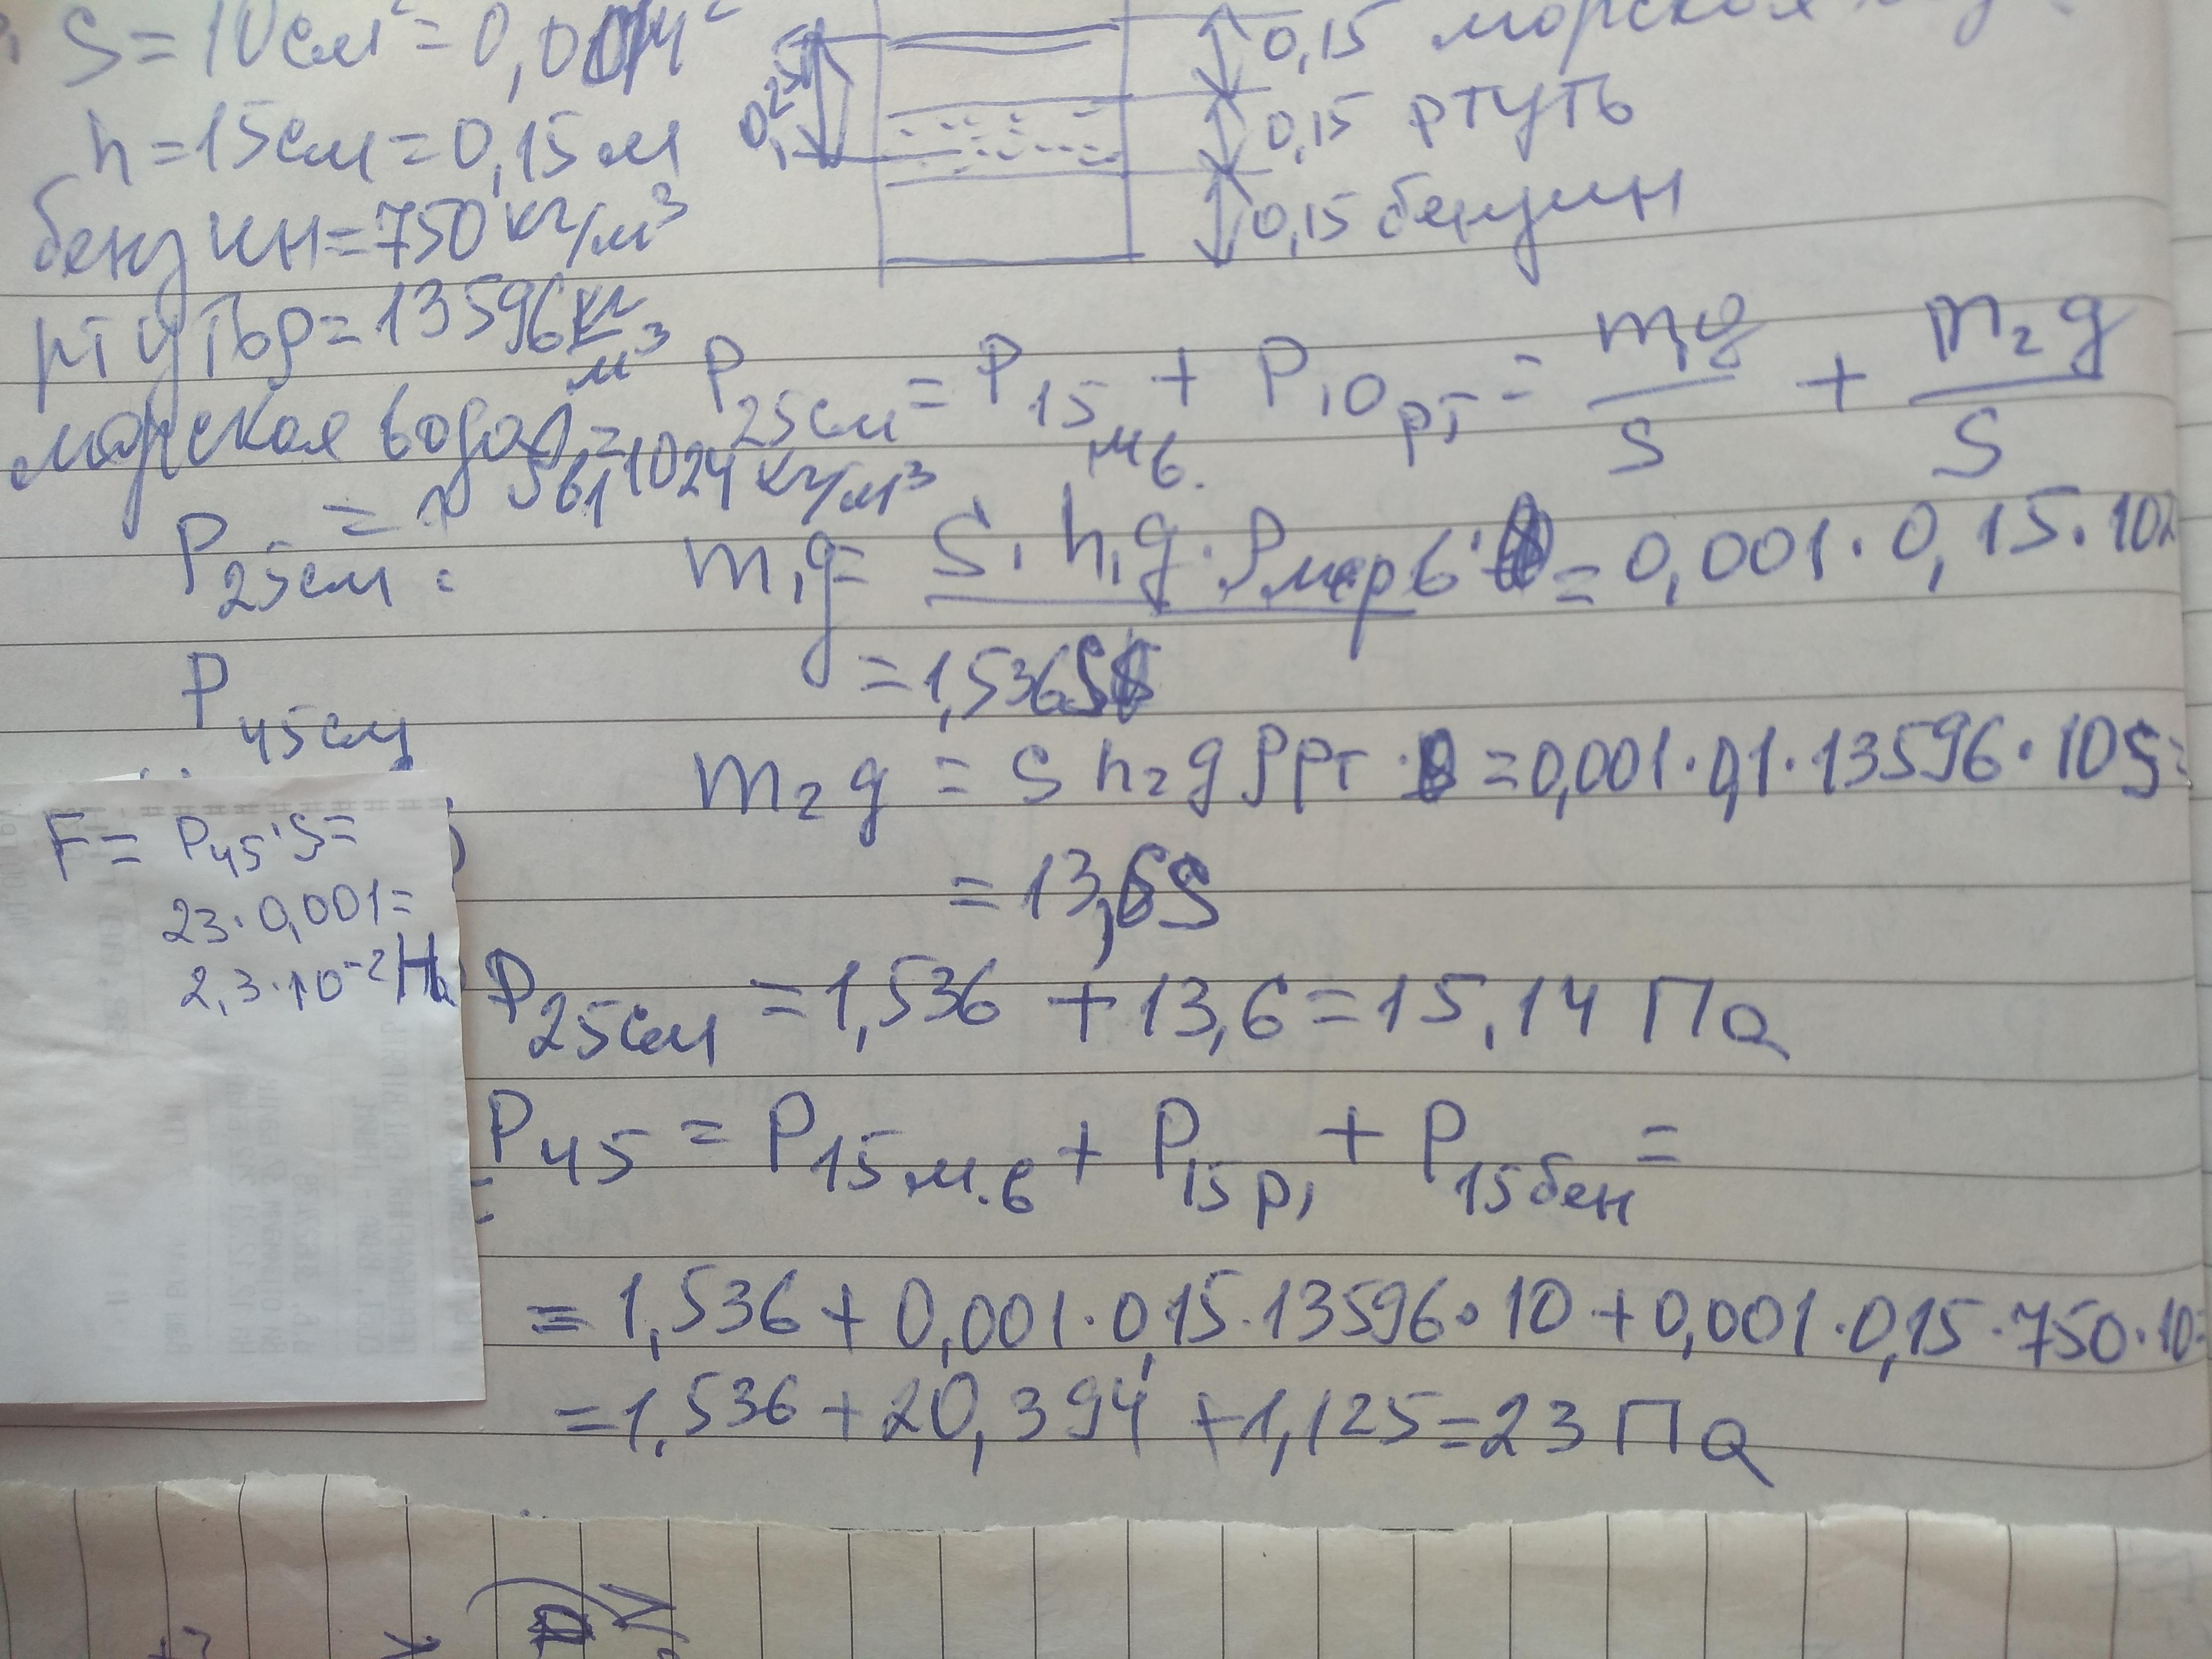 S = 10см² = 0,001м²
h = 15см = 0,15м
бензин = 750 кг/м³
ртуть ρ = 13596 кг/м³
морская вода =
1024 кг/м³
P25см =
P45см
0,25
0,15 морская
0,15 ртуть
0,15 бензин
P25см = P15м.в. + P10рт = m₁g/S + m₂g/S
m₁g = S · h₁g · ρмор в = 0,001 · 0,15 · 102
= 1,536S
m₂g = S h₂ g ρрт = 0,001 · 0,1 · 13596 · 10S =
= 13,6S
P25см = 1,536 + 13,6 = 15,14 Па
P45 = P15м.в + P15р, + P15бен =
= 1,536 + 0,001 · 0,15 · 13596 · 10 + 0,001 · 0,15 · 750 · 10 =
= 1,536 + 20,394 + 1,125 = 23 Па
F = P45 · S =
23 · 0,001 =
2,3 · 10⁻² Н